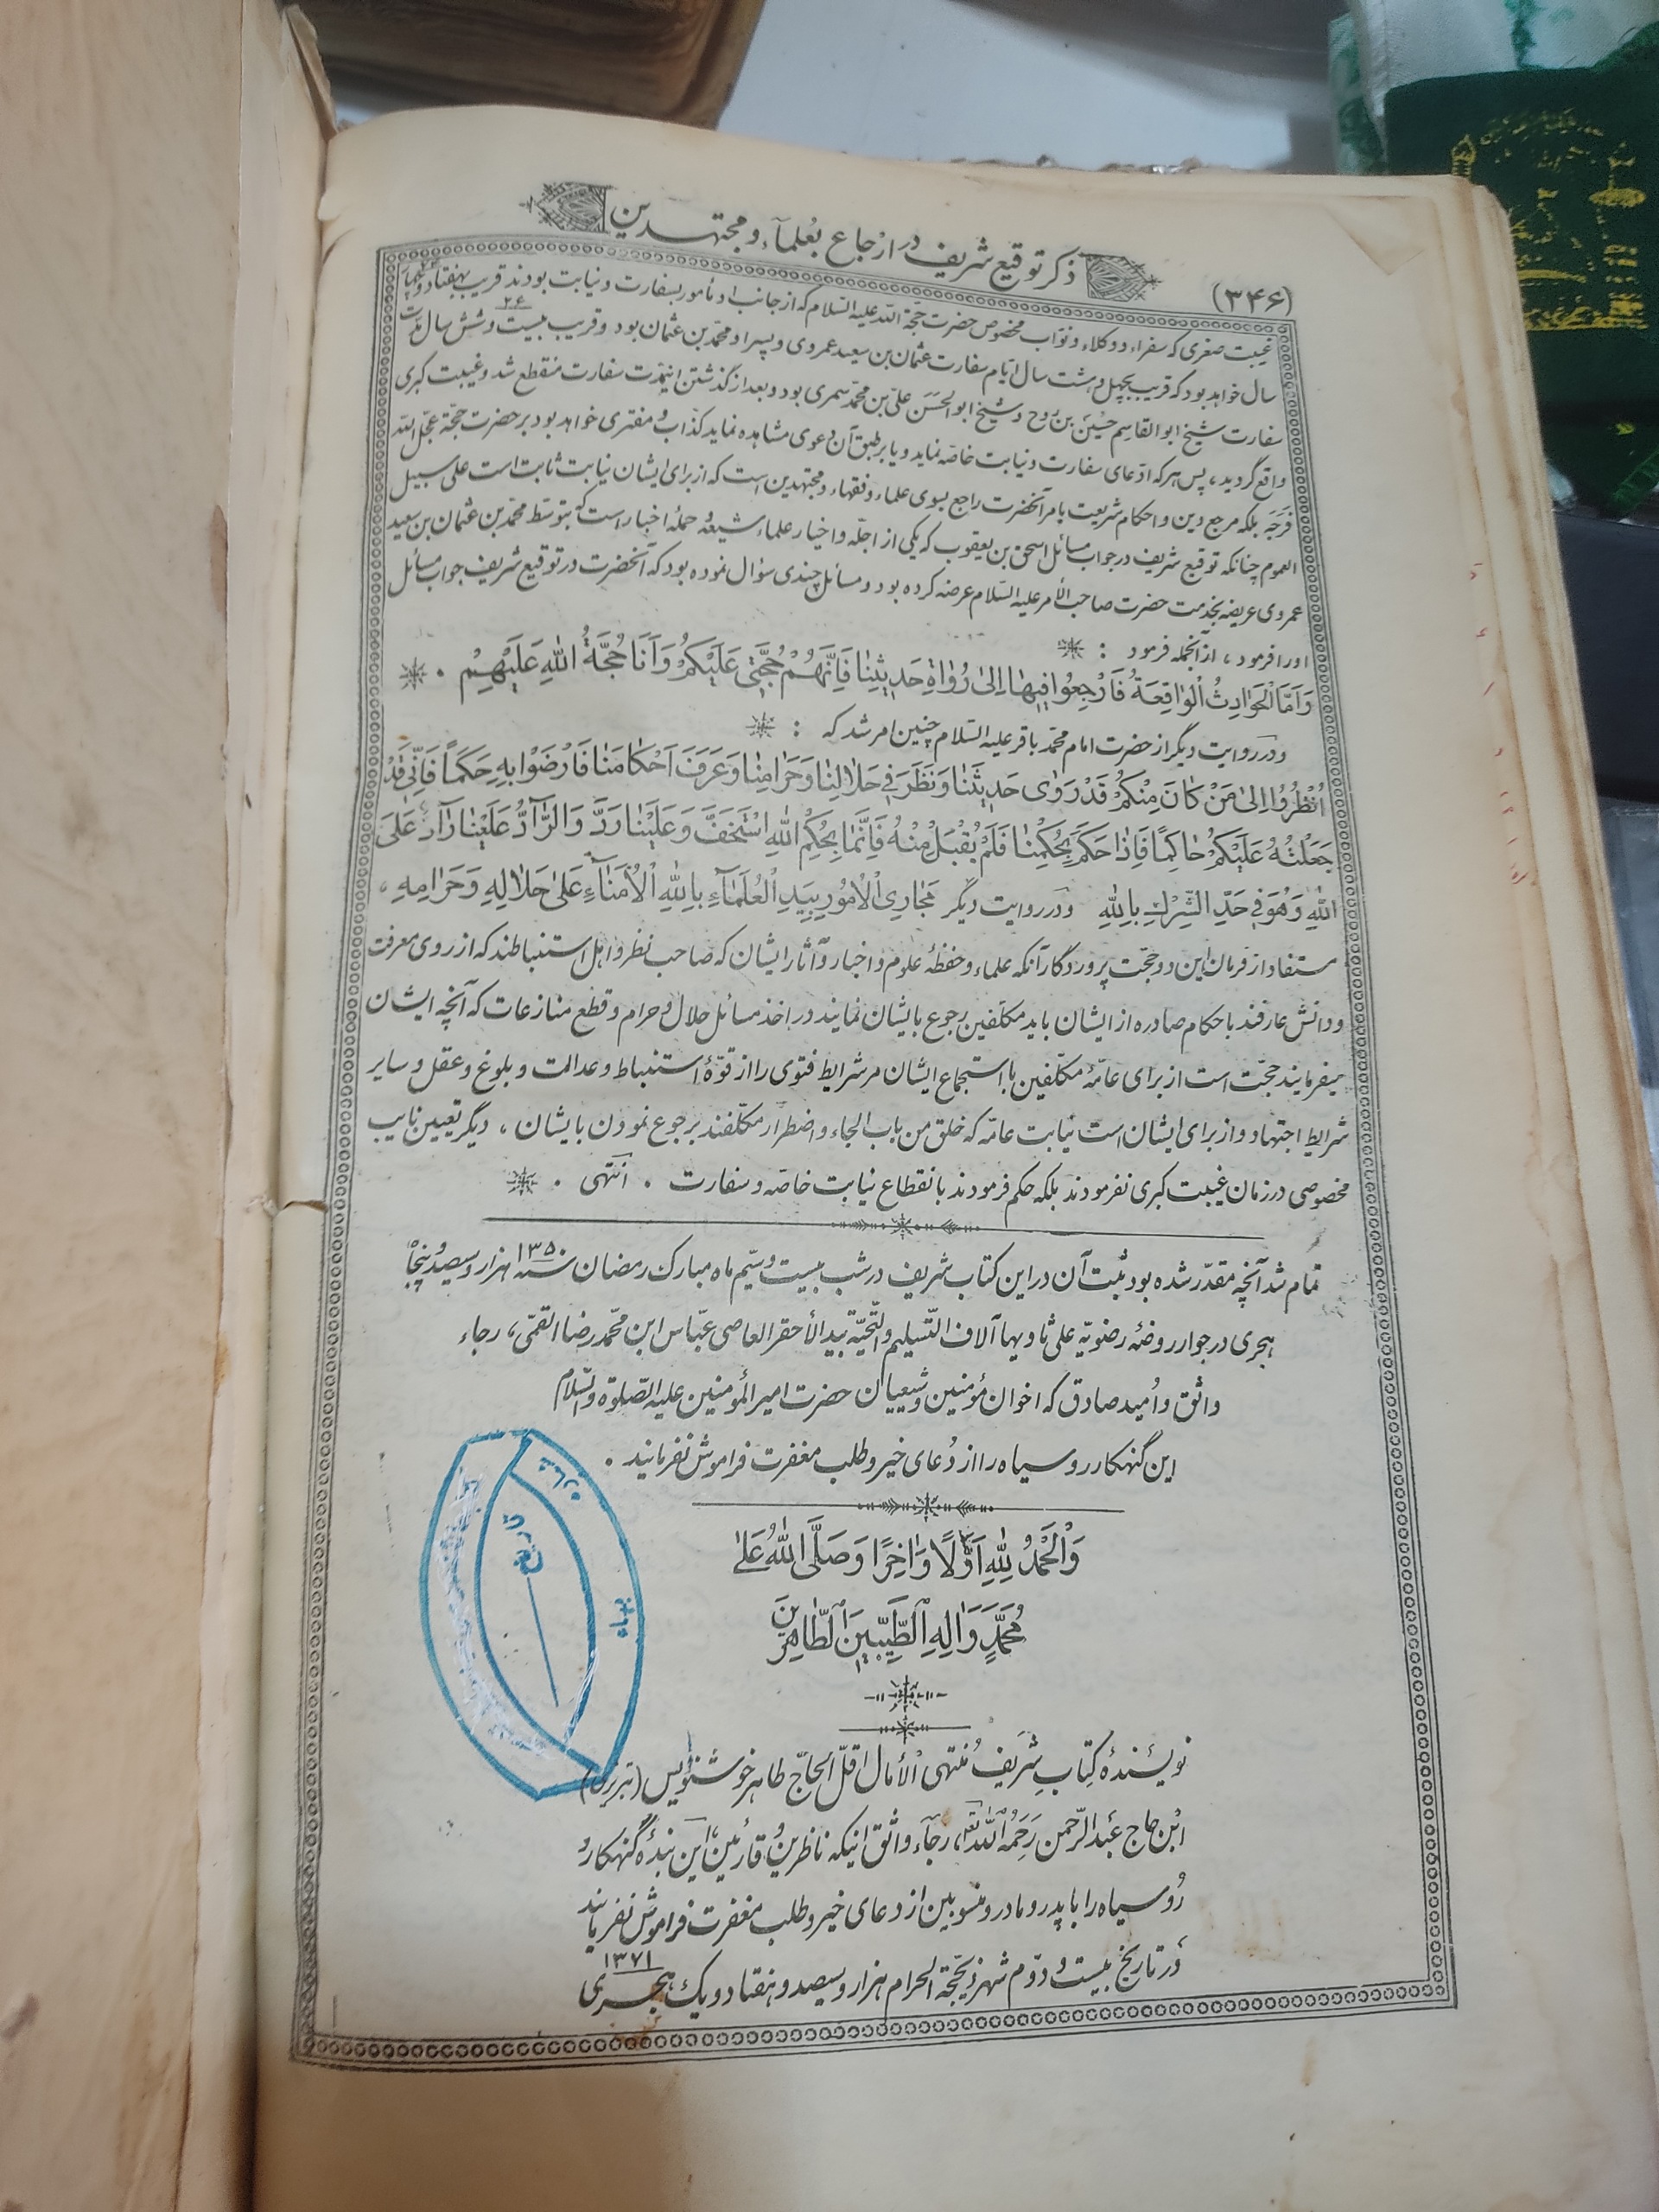 (۳۴۶)
ذکر توقیع شریف در ارجاع بعلماء و مجتهدین
غیبت صغری که سفراء و وکلاء و نوّاب مخصوص حضرت حجّة اللّه علیه السّلام که از جانب او مأمور بسفارت و نیابت بودند قریب بهفتاد و چهار
سال خواهد بود که قریب بچهل و هشت سال ایّام سفارت عثمان بن سعید عمروی و پسر او محمّد بن عثمان بود و قریب بیست و شش سال مدّت
۲۶
سفارت شیخ ابوالقاسم حسین بن روح و شیخ ابوالحسن علیّ بن محمّد سمری بود و بعد از گذشتن اینمدّت سفارت منقطع شد و غیبت کبری
واقع گردید، پس هر که ادّعای سفارت و نیابت خاصّه نماید و یا بر طبق آن دعوی مشاهده نماید کذّاب و مفتری خواهد بود بر حضرت حجّة عجّل اللّه
فرجه بلکه مرجع دین و احکام شریعت بامر آنحضرت راجع بسوی علماء و فقهاء و مجتهدین است که از برای ایشان نیابت ثابت است علی سبیل
العموم چنانکه توقیع شریف در جواب مسائل اسحق بن یعقوب که یکی از اجلّه و اخیار علماء شیعه و حملهٔ اخبار است که بتوسّط محمّد بن عثمان بن سعید
عمروی عریضه بخدمت حضرت صاحب الأمر علیه السّلام عرضه کرده بود و مسائل چندی سؤال نموده بود که آنحضرت در توقیع شریف جواب مسائل
او را فرمود، از آنجمله فرمود :
وَ اَمَّا الْحَوادِثُ الْواقِعَةُ فَارْجِعُوا فیها اِلی رُواةِ حَدیثِنا فَاِنَّهُمْ حُجَّتی عَلَیْکُمْ وَ اَنَا حُجَّةُ اللّهِ عَلَیْهِمْ .
و در روایت دیگر از حضرت امام محمّد باقر علیه السّلام چنین امر شد که :
اُنْظُرُوا اِلی مَنْ کانَ مِنْکُمْ قَدْ رَوی حَدیثَنا وَ نَظَرَ فی حَلالِنا وَ حَرامِنا وَ عَرَفَ اَحْکامَنا فَارْضَوْا بِهِ حَکَماً فَاِنّی قَدْ
جَعَلْتُهُ عَلَیْکُمْ حاکِماً فَاِذا حَکَمَ بِحُکْمِنا فَلَمْ یُقْبَلْ مِنْهُ فَاِنَّما بِحُکْمِ اللّهِ اسْتَخَفَّ وَ عَلَیْنا رَدَّ وَ الرّآدُّ عَلَیْنا رآدٌّ عَلَی
اللّهِ وَ هُوَ فی حَدِّ الشِّرْکِ بِاللّهِ و در روایت دیگر مَجارِی الْاُمُورِ بِیَدِ الْعُلَمآءِ بِاللّهِ الْاُمَنآءِ عَلی حَلالِهِ وَ حَرامِهِ،
مستفاد از فرمان این دو حجّت پروردگار آنکه علماء و حفظهٔ علوم و اخبار و آثار ایشان که صاحب نظر و اهل استنباطند که از روی معرفت
و دانش عارفند باحکام صادره از ایشان باید مکلّفین رجوع بایشان نمایند در اخذ مسائل حلال و حرام و قطع منازعات که آنچه ایشان
میفرمایند حجّت است از برای عامّهٔ مکلّفین با استجماع ایشان مر شرایط فتوی را از قوّهٔ استنباط و عدالت و بلوغ و عقل و سایر
شرایط اجتهاد و از برای ایشان است نیابت عامّه که خلق من باب الجاء و اضطرار مکلّفند برجوع نمودن بایشان، دیگر تعیین نایب
مخصوصی در زمان غیبت کبری نفرمودند بلکه حکم فرمودند بانقطاع نیابت خاصّه و سفارت . انتهی .
تمام شد آنچه مقدّر شده بود ثبت آن در این کتاب شریف در شب بیست و سیّم ماه مبارک رمضان سنه ۱۳۵۰ هزار و سیصد و پنجاه
هجری در جوار روضهٔ رضویّه علی ثاویها آلاف التّسلیم و التّحیّة بید الأحقر العاصی عبّاس ابن محمّد رضا القمّی، رجاء
واثق و اُمید صادق که اخوان مؤمنین و شیعیان حضرت امیر المؤمنین علیه الصّلوة و السّلام
این گنهکار رو سیاه را از دُعای خیر و طلب مغفرت فراموش نفرمایند .
وَ الْحَمْدُ لِلّهِ اَوَّلاً وَ اخِرًا وَ صَلَّی اللّهُ عَلی
مُحَمَّدٍ وَ الِهِ الطَّیِّبینَ الطّاهِرینَ
شماره
تاریخ
بهاء
نویسندهٔ کتاب شریف مُنتهی الأمال اقلّ الحاجّ طاهر خوشنویس (تبریزی)
ابْن حاج عبد الرّحمن رَحِمَهُ اللّه، رجآء واثق اینکه ناظرین و قارئین، این بندهٔ گنهکار
رُو سیاه را با پدر و مادر و منسوبین از دعای خیر و طلب مغفرت فراموش نفرمایند
در تاریخ بیست و دوّم شهر ذیحجّة الحرام هزار و سیصد و هفتاد و یک هجری
۱۳۷۱